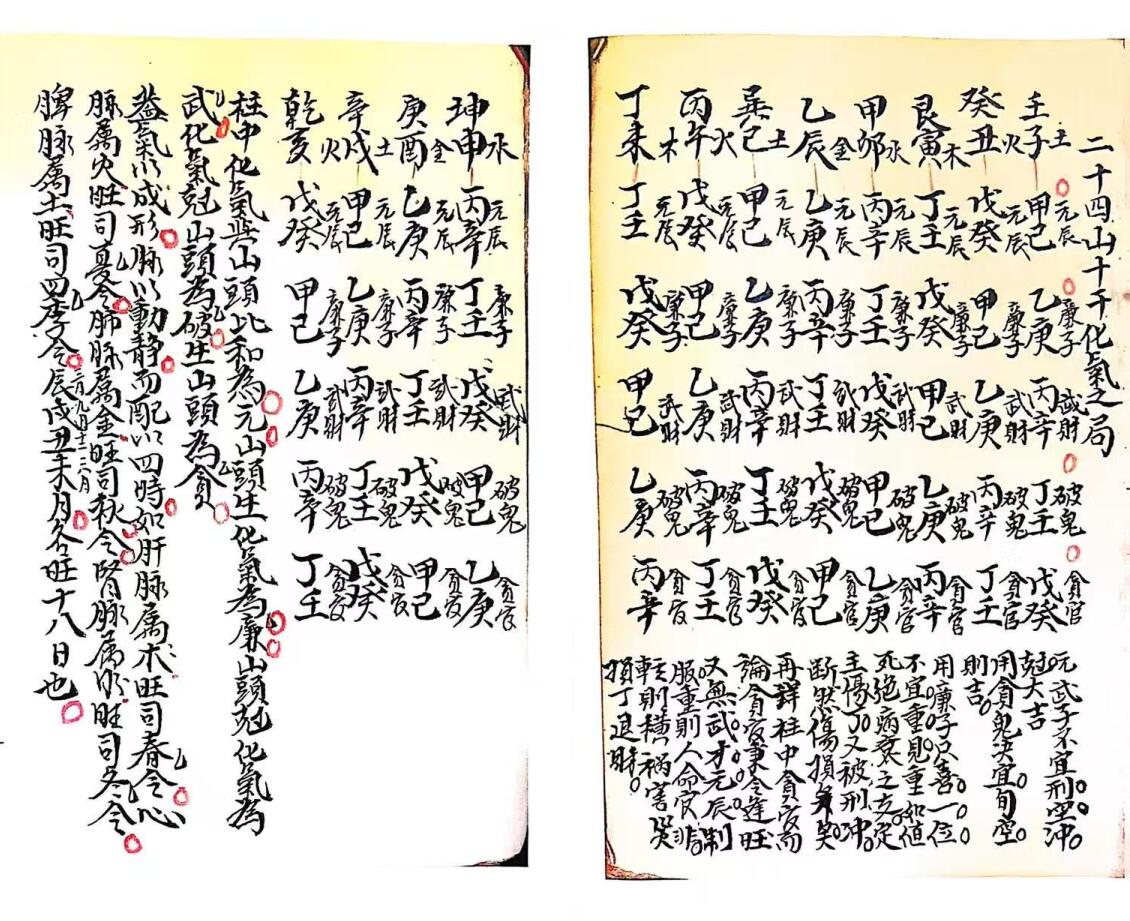 二十四山十干化氣之局
壬子土 甲己元辰 乙庚廉子 丙辛武財 丁壬破鬼 戊癸貪官
癸丑火 戊癸元辰 甲己廉子 乙庚武財 丙辛破鬼 丁壬貪官
艮寅木 丁壬元辰 戊癸廉子 甲己武財 乙庚破鬼 丙辛貪官
甲卯水 丙辛元辰 丁壬廉子 戊癸武財 甲己破鬼 乙庚貪官
乙辰金 乙庚元辰 丙辛廉子 丁壬武財 戊癸破鬼 甲己貪官
巽巳土 甲己元辰 乙庚廉子 丙辛武財 丁壬破鬼 戊癸貪官
丙午火 戊癸元辰 甲己廉子 乙庚武財 丙辛破鬼 丁壬貪官
丁未木 丁壬元辰 戊癸廉子 甲己武財 乙庚破鬼 丙辛貪官
元武子不宜刑空沖
尅大吉
用貪鬼决宜旬空
則吉
用廉子只喜一位
不宜重見重如值
死絶病衰之支定
主傷丁又被刑沖
断然傷損
再詳柱中貪官而
論貪官秉令逢旺
又無武才元辰制
服重則人命官非
輕則横禍害哭
損丁退財
坤申水 丙辛元辰 丁壬廉子 戊癸武財 甲己破鬼 乙庚貪官
庚酉金 乙庚元辰 丙辛廉子 丁壬武財 戊癸破鬼 甲己貪官
辛戌土 甲己元辰 乙庚廉子 丙辛武財 丁壬破鬼 戊癸貪官
乾亥火 戊癸元辰 甲己廉子 乙庚武財 丙辛破鬼 丁壬貪官
柱中化氣與山頭比和為元山頭生化氣為廉山頭尅化氣為
武化氣尅山頭為破生山頭為貪
蓋氣以成形脉以動静而配以四時如肝脉属木旺司春令心
脉属火旺司夏令肺脉属金旺司秋令腎脉属水旺司冬令
脾脉属土旺司四季令辰戌丑未月三六九十二月各旺十八日也